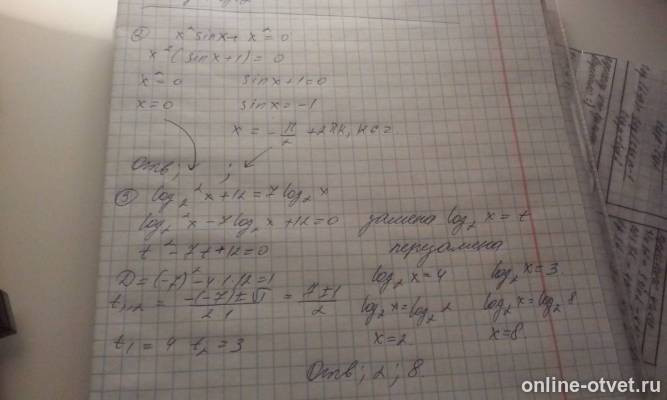 ② x² sinx + x² = 0
x² (sinx + 1) = 0
x² = 0 sinx + 1 = 0
x = 0 sinx = -1
x = -π/2 + 2πk, kϵz
Отв; ;
③ log₂² x + 12 = 7 log₂ x
log₂² x - 7 log₂ x + 12 = 0 замена log₂ x = t
t² - 7t + 12 = 0 перезамена
D = (-7)² - 4·1·12 = 1 log₂ x = 4 log₂ x = 3
t₁,₂ = -(-7)±√1 / 2·1 = 7±1 / 2 log₂ x = log₂ 2 log₂ x = log₂ 8
t₁ = 4 t₂ = 3 x = 2 x = 8
Отв; 2 ; 8
online-otvet.ru